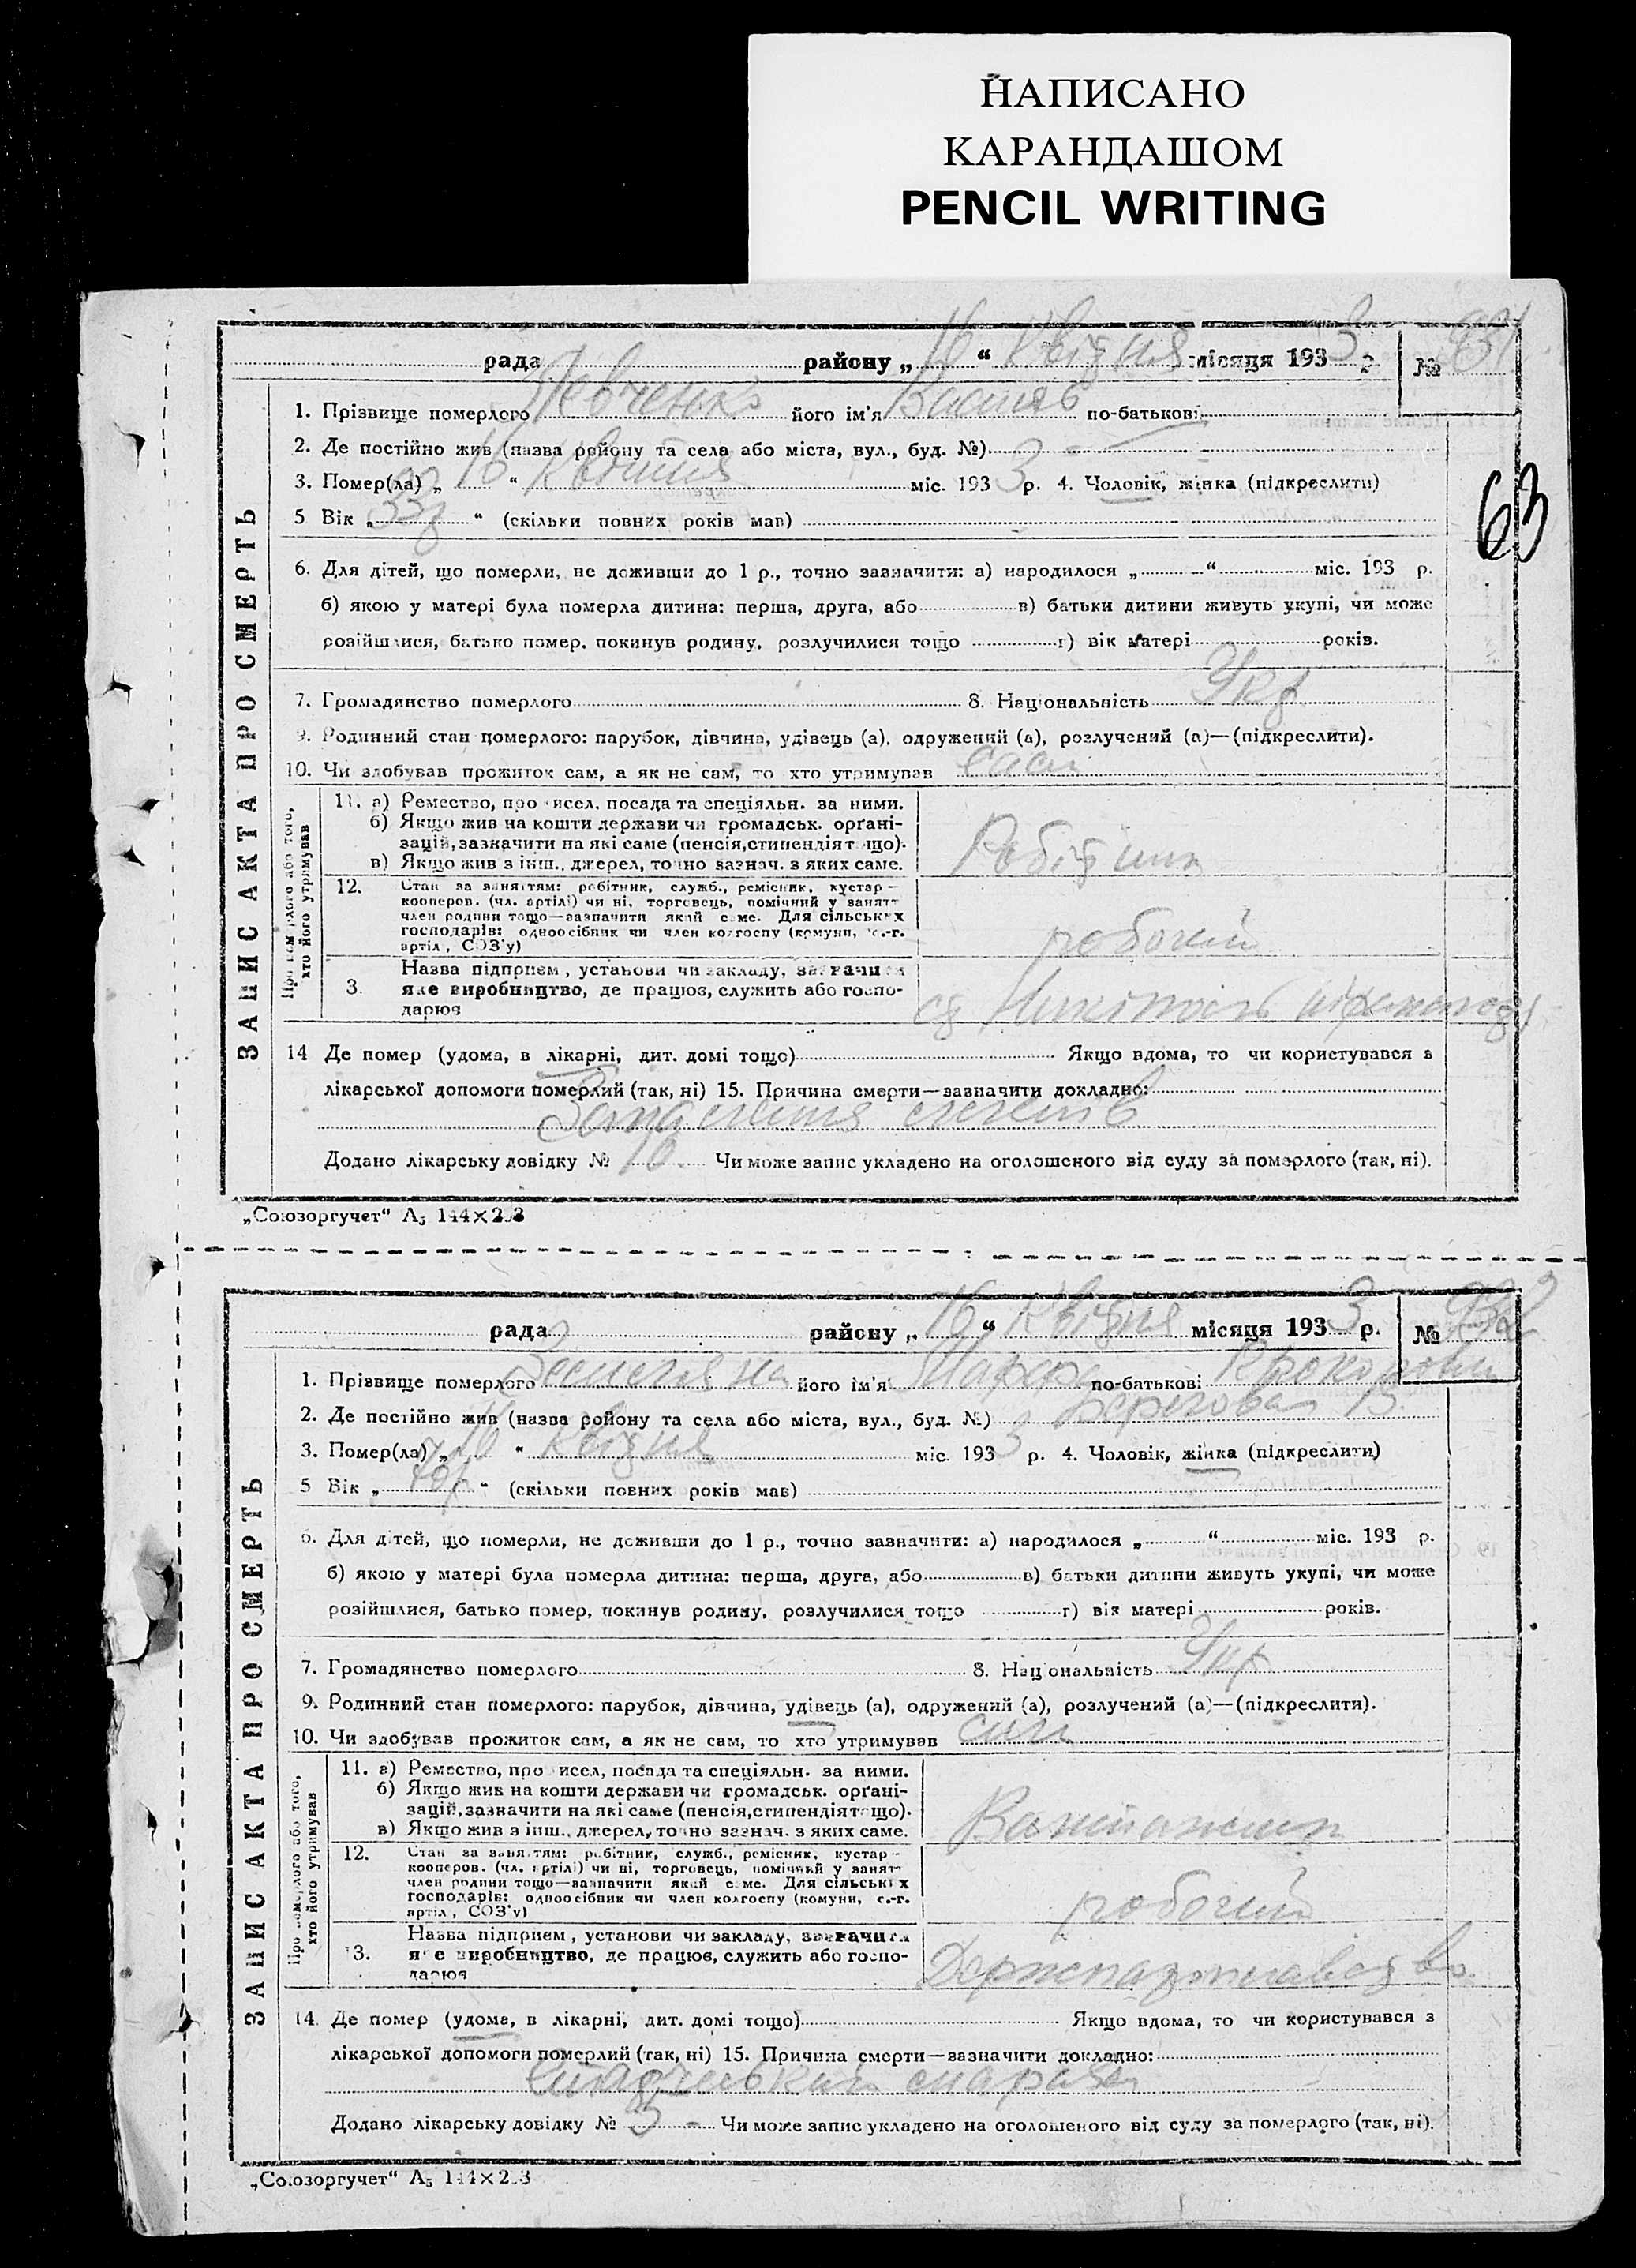 НАПИСАНО
КАРАНДАШОМ
PENCIL WRITING
рада районy „16“ Квітня місяця 1933 р. № 831
1. Прізвище померлого Левченко його ім'я Василь по-батькові
2. Де постійно жив (назва району та села або міста, вул., буд. №) —
3. Помер(ла) „16“ Квітня міс. 1933 р. 4. Чоловік, жінка (підкреслити)
63
5 Вік „33р“ (скільки повних років мав)
6. Для дітей, що померли, не доживши до 1 р., точно зазначити: а) народилося „ “ міс. 193 р.
б) якою у матері була померла дитина: перша, друга, або в) батьки дитини живуть укупі, чи може
розійшлися, батько помер, покинув родину, розлучилися тощо г) вік матері років.
7. Громадянство померлого 8. Національність Укр
9. Родинний стан померлого: парубок, дівчина, удівець (а), одружений (а), розлучений (а)—(підкреслити).
10. Чи здобував прожиток сам, а як не сам, то хто утримував сам
ЗАПИС АКТА ПРО СМЕРТЬ
Про померлого або того,
хто його утримував
11. а) Ремество, промисел, посада та спеціяльн. за ними.
б) Якщо жив на кошти держави чи громадськ. орґані-
зацій, зазначити на які саме (пенсія, стипендія тощо).
в) Якщо жив з інш. джерел, точно зазнач. з яких саме.
Робітник
12. Стан за заняттям: робітник, служб., ремісник, кустар—
кооперов. (чл. артілі) чи ні, торговець, помічний у занятт
член родини тощо—зазначити який саме. Для сільських
господарів: одноосібник чи член колгоспу (комуни, с.-г.
артіл, СОЗ'у)
робочий
3. Назва підприєм, установи чи закладу, зазначити
яке виробництво, де працює, служить або госпо-
дарює
14 Де помер (удома, в лікарні, дит. домі тощо) Якщо вдома, то чи користувався з
лікарської допомоги померлий (так, ні) 15. Причина смерти—зазначити докладно:
Запалення легенів
Додано лікарську довідку № 10. Чи може запис укладено на оголошеного від суду за померлого (так, ні).
„Союзоргучет“ А₅ 144×203
рада району „16“ Квітня місяця 1933 р. № 832
1. Прізвище померлого його ім'я Марфа по-батькові Прокоповн
2. Де постійно жив (назва району та села або міста, вул., буд. №) Берегова 13.
3. Помер(ла) „16“ Квітня міс. 1933 р. 4. Чоловік, жінка (підкреслити)
5 Вік „70р“ (скільки повних років мав)
6. Для дітей, що померли, не доживши до 1 р., точно зазначити: а) народилося „ “ міс. 193 р.
б) якою у матері була померла дитина: перша, друга, або в) батьки дитини живуть укупі, чи може
розійшлися, батько помер, покинув родину, розлучилися тощо г) вік матері років.
7. Громадянство померлого 8. Національність Укр
9. Родинний стан померлого: парубок, дівчина, удівець (а), одружений (а), розлучений (а)—(підкреслити).
10. Чи здобував прожиток сам, а як не сам, то хто утримував син
ЗАПИС АКТА ПРО СМЕРТЬ
Про померлого або того,
хто його утримував
11. а) Ремество, промисел, посада та спеціяльн. за ними.
б) Якщо жив на кошти держави чи громадськ. орґані-
зацій, зазначити на які саме (пенсія, стипендія тощо).
в) Якщо жив з інш. джерел, точно зазнач. з яких саме.
Вантажник
12. Стан за заняттям: робітник, служб., ремісник, кустар—
кооперов. (чл. артілі) чи ні, торговець, помічний у занят
член родини тощо—зазначити який саме. Для сільських
господарів: одноосібник чи член колгоспу (комуни, с.-г.
артіл, СОЗ'у)
робочий
13. Назва підприєм, установи чи закладу, зазначити
яке виробництво, де працює, служить або госпо-
дарює
Держпароплавство.
14. Де помер (удома, в лікарні, дит. домі тощо) Якщо вдома, то чи користувався з
лікарської допомоги померлий (так, ні) 15. Причина смерти—зазначити докладно:
Додано лікарську довідку № 5 - Чи може запис укладено на оголошеного від суду за померлого (так, ні).
„Союзоргучет“ А₅ 144×203